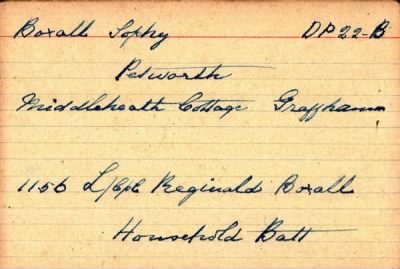 Boxall Sophy DP22-B
Petworth
Middleheath Cottage Graffham
1156 L/Cpl Reginald Boxall
Household Batt